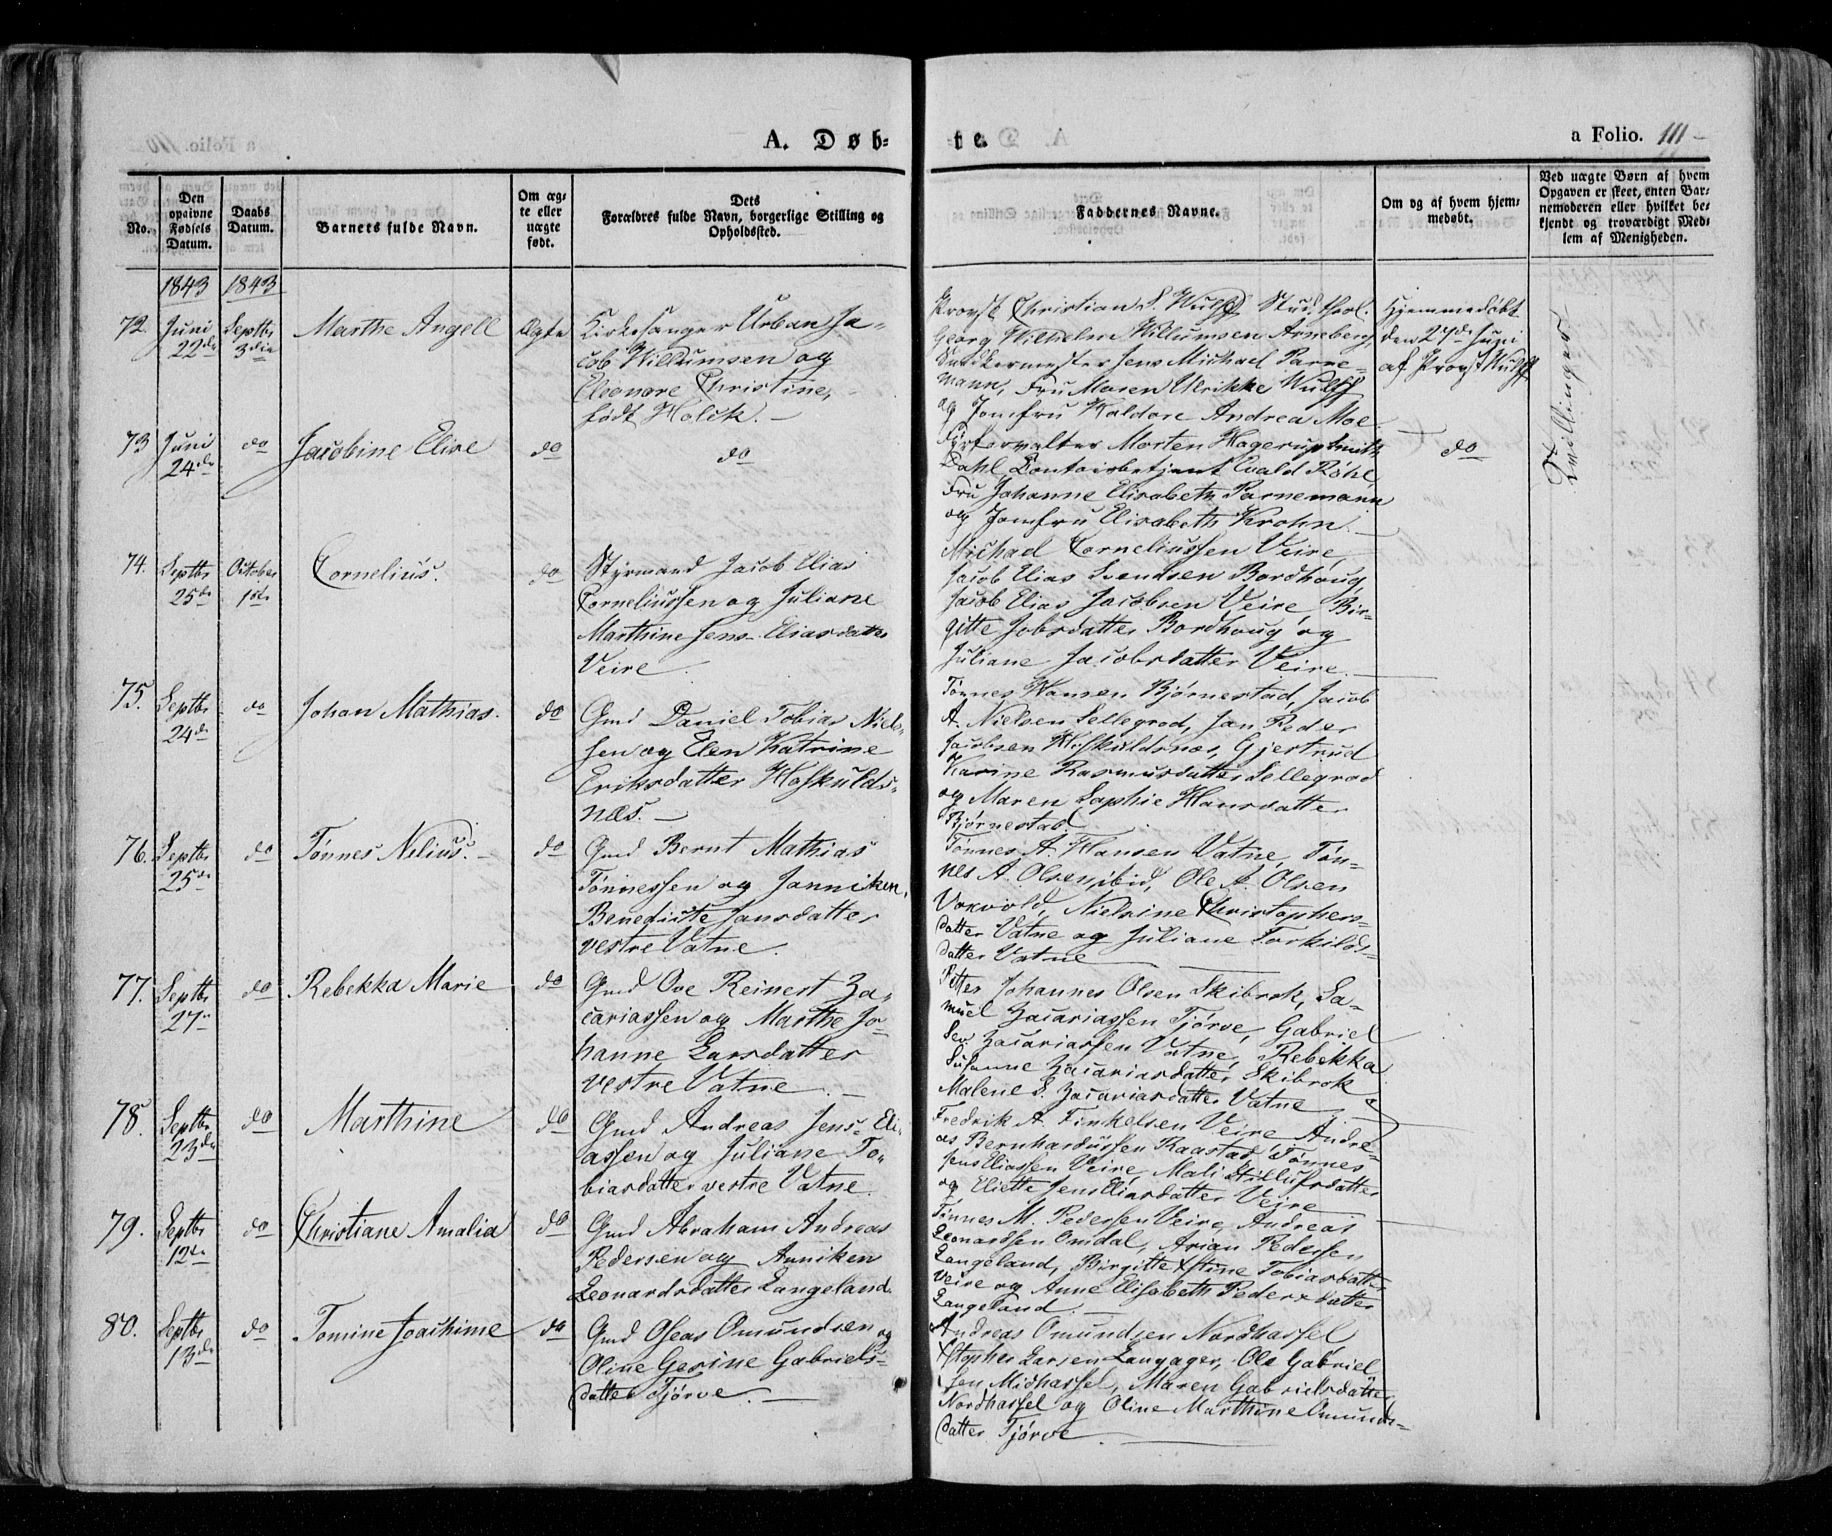 A. Døb-
te.
a Folio. 111
No.
Den
opgivne
Fødsels
Datum.
Daabs
Datum.
Barnets fulde Navn.
Om æg-
te eller
uægte
født.
Dets
Forældres fulde Navn, borgerlige Stilling og
Opholdssted.
Faddernes Navne.
Om og af hvem hjem-
medøbt.
Ved uægte Børn af hvem
Opgaven er skeet, enten Bar-
nemoderen eller hvilket be-
kjendt og troværdigt Med-
lem af Menigheden.
1843 1843
72. Juni 22de Septbr 3die Marthe Angell Ægte
Kirkesanger Urban Ja-
cob Willumsen og
Eleonore Christine,
født Holck. –
Provst Christian S Wulff Stud. theol.
Georg Wilhelm Willumsen Arneberg,
Snedkermester Jens Michael Parne-
mann, Fru Maren Ulrikke Wulff
og Jomfru Haldore Andrea Moe
Hjemmedøbt
den 27de Juni
af Provst Wulff
Tvillinger
73 Juni 24de do Jacobine Elise do
do
Fyrforvalter Morten Hagerup Smith
Dahl, Contoirbetjent Evald Røhe
Fru Johanne Elisabeth Parnemann
og Jomfru Elisabeth Krohn.
do
74. Septbr 25de October 1ste Cornelius. do
Styrmand Jacob Elias
Corneliussen og Juliane
Marthine Jens-Eliasdatter
Veire.
Michael Corneliussen Veire,
Jacob Elias Svendsen Bordhoug,
Jacob Elias Jacobsen Veire, Bir-
gitte Jobsdatter Bordhoug og
Juliane Jacobsdatter Veire.
75. Septbr 24de do Johan Mathias. do
Gmd Daniel Tobias Niel-
sen og Elen Katrine
Eriksdatter Høskulds-
næs. –
Tønnes Hansen Bjørnestad, Jacob
A. Nielsen Sellegrod, Jan Peder
Jacobsen Høskuldsnæs, Gjertrud
Karine Rasmusdatter Sellegrod
og Maren Sophie Hansdatter
Bjørnestad.
76. Septbr 25de do Tønnes Nilius. – do
Gmd Bernt Mathias
Tønnessen og Janniken
Benedicte Jansdatter
vestre Vatne.
Tønnes A. Hansen Vatne, Tøn-
nes A. Olsen, ibid, Ole A. Olsen
Voxvold, Nielsine Christophers-
datter Vatne og Juliane Torkilds-
datter Vatne
77. Septbr 27de do Rebekka Marie do
Gmd Ove Reinert Za-
cariassen og Marthe Jo-
hanne Larsdatter
vestre Vatne. –
Johannes Olsen Skibrok, Sa-
muel Zacariassen Tjørve, Gabriel
Sev. Zacariassen Vatne, Rebekka
Susanne Zacariasdatter Skibrok
Malene S. Zacariasdatter Vatne
78. Septbr 23de do Marthine do
Gmd Andreas Jens-Eli-
assen og Juliane To-
biasdatter vestre Vatne.
Fredrik A. Finkelsen Veire, Andre-
as Bernhardussen Raastad, Tønnes
Jens Eliassen Veire, Mali Stillufsdatter
og Eliette Jens Eliasdatter Veire
79. Septbr 12te do Christiane Amalia do
Gmd Abraham Andreas
Pedersen og Anniken
Leonardsdatter Langeland.
Tønnes M. Pedersen Veire, Andreas
Leonardssen Omdal, Arian Pedersen
Langeland, Birgitte Xstine Tobiasdatter
Veire og Anne Elisabeth Pedersdatter
Langeland.
80. Septbr 13de do Tomine Joachime do
Gmd Oseas Omundsen og
Oline Gesine Gabriels-
datter Tjørve. –
Andreas Omundsen Nordhassel
Xstopher Larsen Langager, Ole Gabriel
sen Midhassel, Maren Gabrielsdatter
Nordhassel og Oline Marthine Omunds-
datter Tjørve.